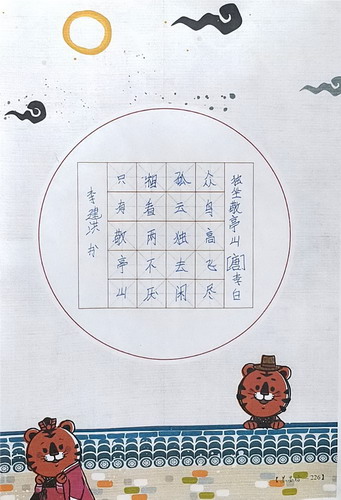 独坐敬亭山[唐]李白
众鸟高飞尽
孤云独去闲
相看两不厌
只有敬亭山
李建洪书
226】